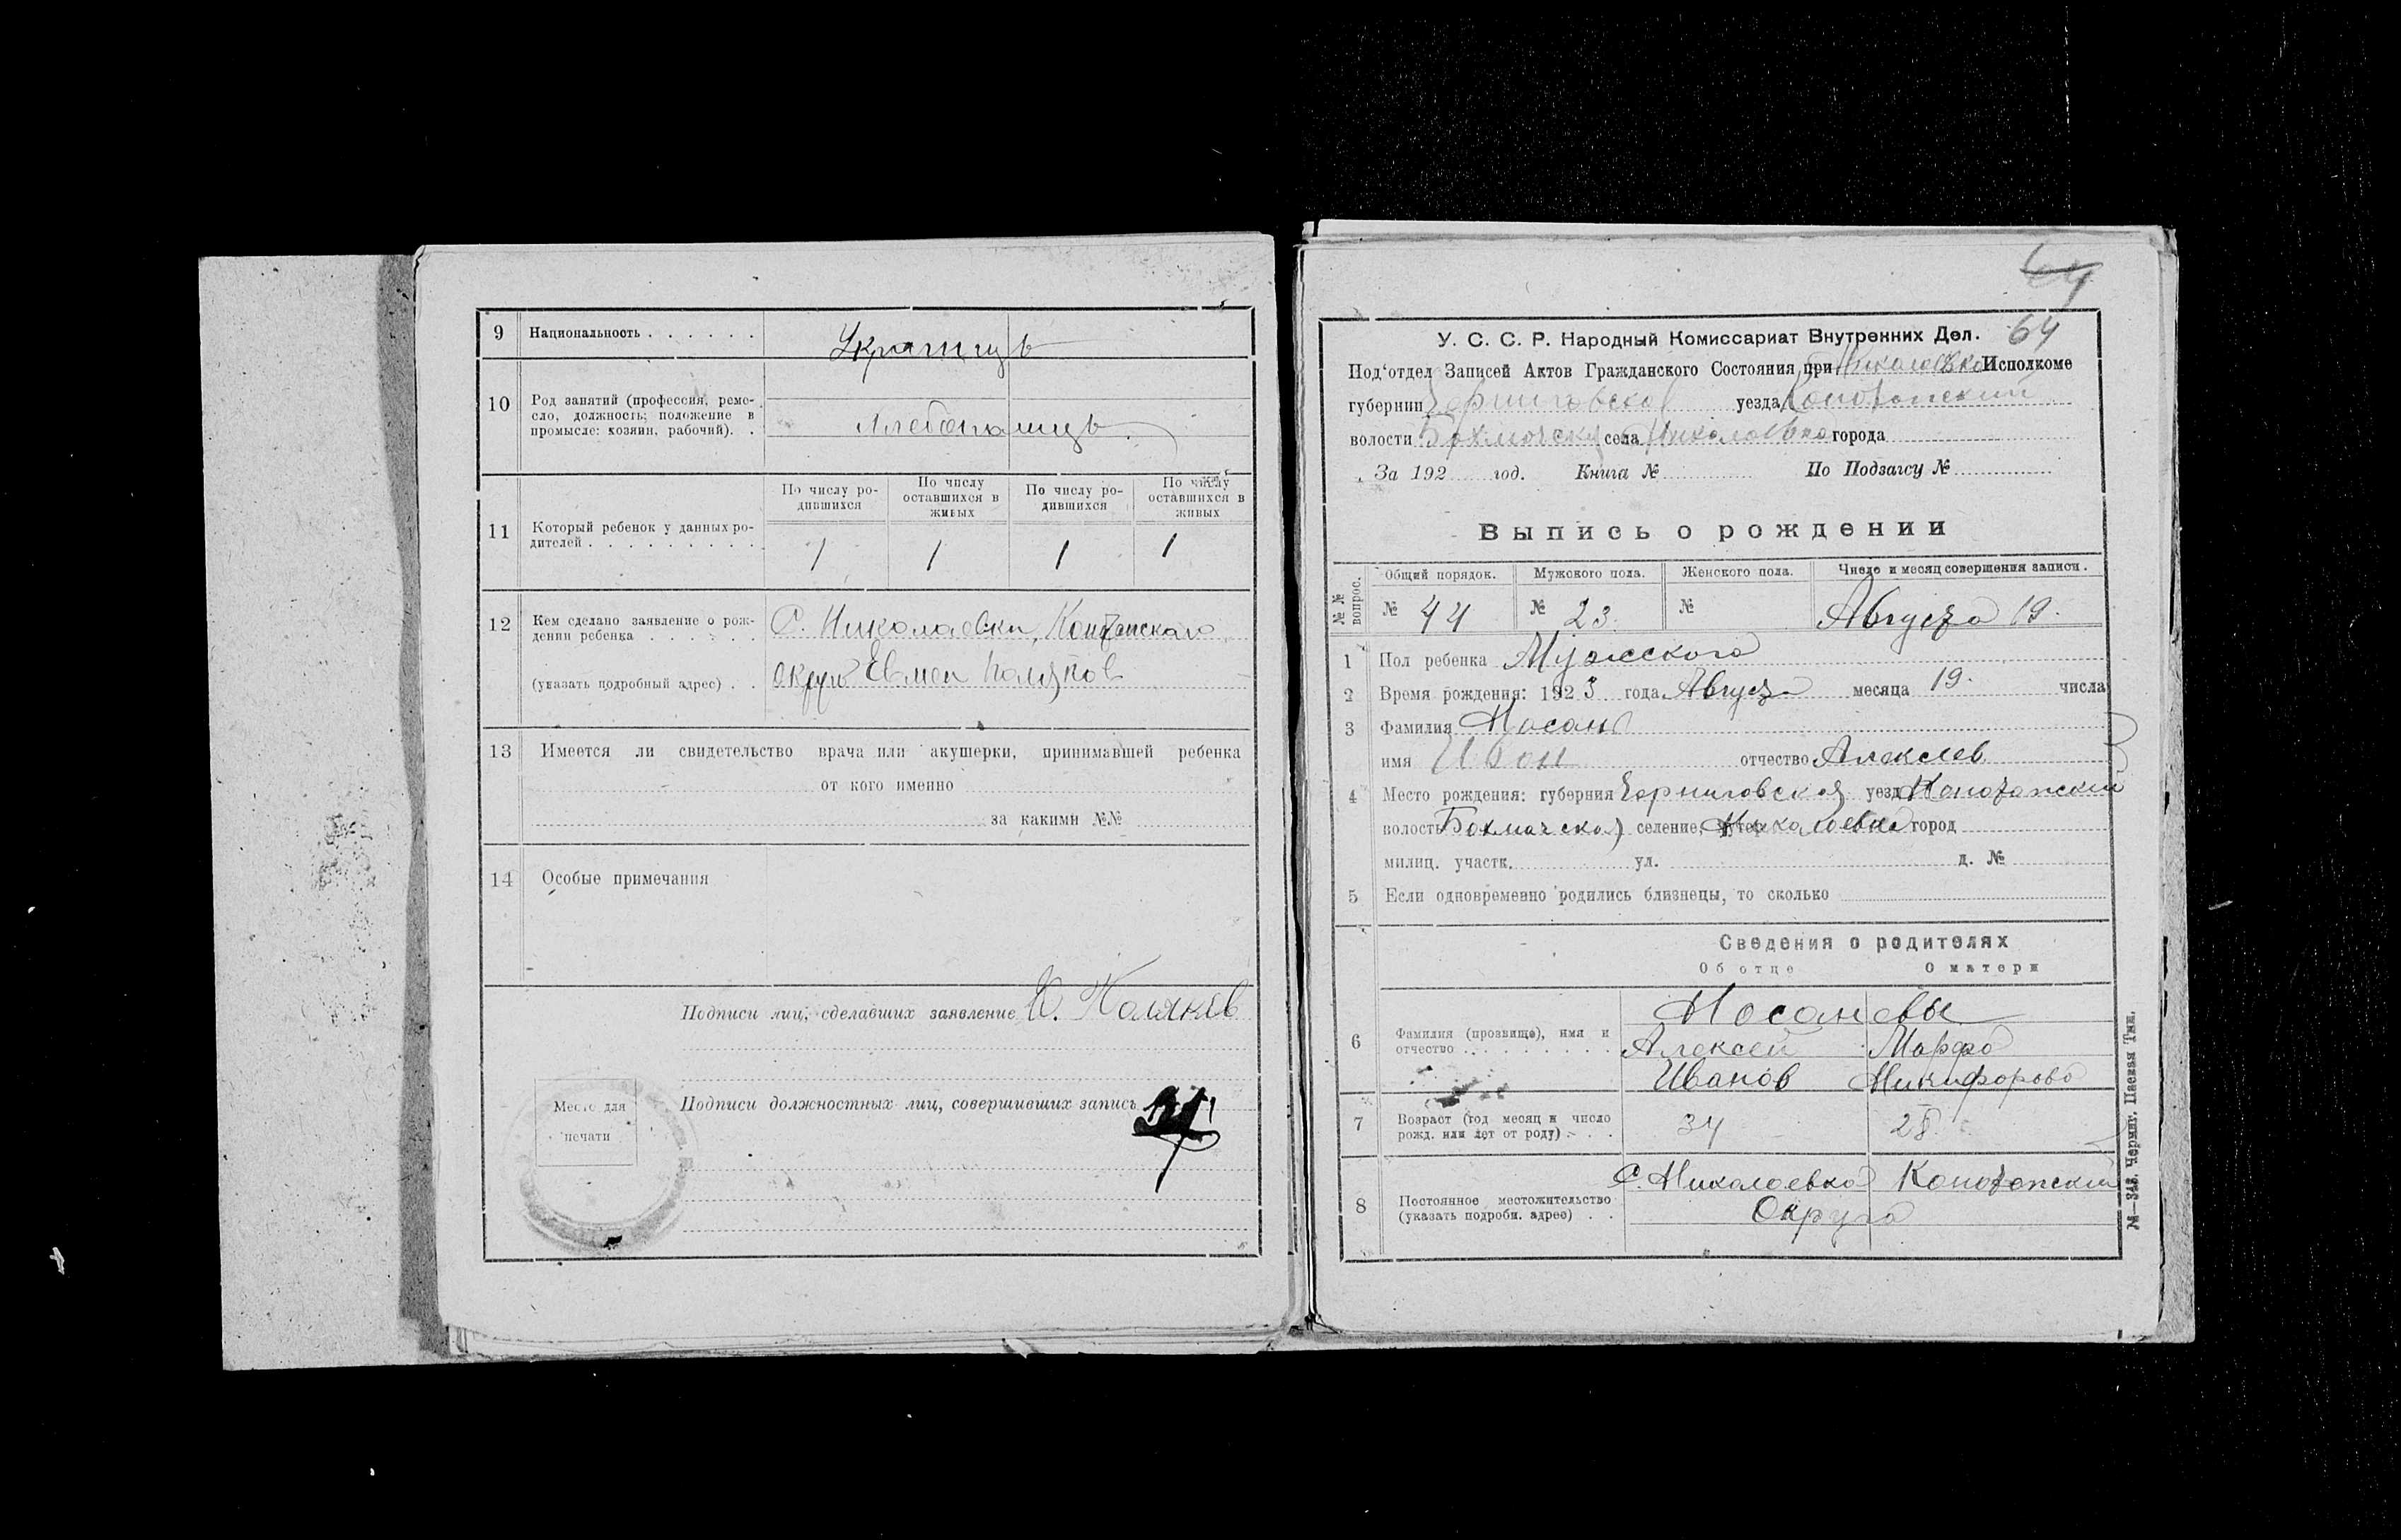 9 Национальность . . . . . .
Украинцъ
10 Род занятий (профессия, реме-
сло, должность; положение в
промысле: хозяин, рабочий). .
Хлебопашцъ
11 Который ребенок у данных ро-
дителей . . . . . . . . .
По числу ро-
дившихся
По числу
оставшихся в
живых
По числу ро-
дившихся
По числу
оставшихся в
живых
1 1 1 1
12 Кем сделано заявление о рож-
дении ребенка . . . . . .
С. Николаевки, Конотопскаго
(указать подробный адрес) . .
округа Евмен Поляков
13 Имеется ли свидетельство врача или акушерки, принимавшей ребенка
от кого именно
за какими №№
14 Особые примечания
Подписи лиц, сделавших заявление
Поляков
Место для
печати
Подписи должностных лиц, совершивших запись
64
У. С. С. Р. Народный Комиссариат Внутренних Дел. 64
Под'отдел Записей Актов Гражданского Состояния при Николаевко Исполкоме
губернии Черниговской уезда Конотопский
волости Бахмачской села Николаевка города
За 192 год. Книга № По Подзагсу №
Выпись о рождении
№ № вопрос.
Общий порядок. Мужского пола. Женского пола. Число и месяц совершения записи.
№ 44 № 23. № Августа 19.
1 Пол ребенка Мужского
2 Время рождения: 1923 года Августа месяца 19. числа
3 Фамилия Носань
имя Иван отчество Алексеев
4 Место рождения: губерния Черниговская уезд Конотопский
волость Бахмачской селение, хутор Николаевка город
милиц. участк. ул. д. №
5 Если одновременно родились близнецы, то сколько
Сведения о родителях
Об отце О матери
6 Фамилия (прозвище), имя и
отчество . . . . . . . . .
Носановы
Алексей Марфа
Иванов Никифорова
7 Возраст (год месяц и число
рожд. или лет от роду) . . .
34 28
8 Постоянное местожительство
(указать подробн. адрес) . .
С. Николаевка Конотопский
Округа
№—343. Черниг. Цаевая Тип.